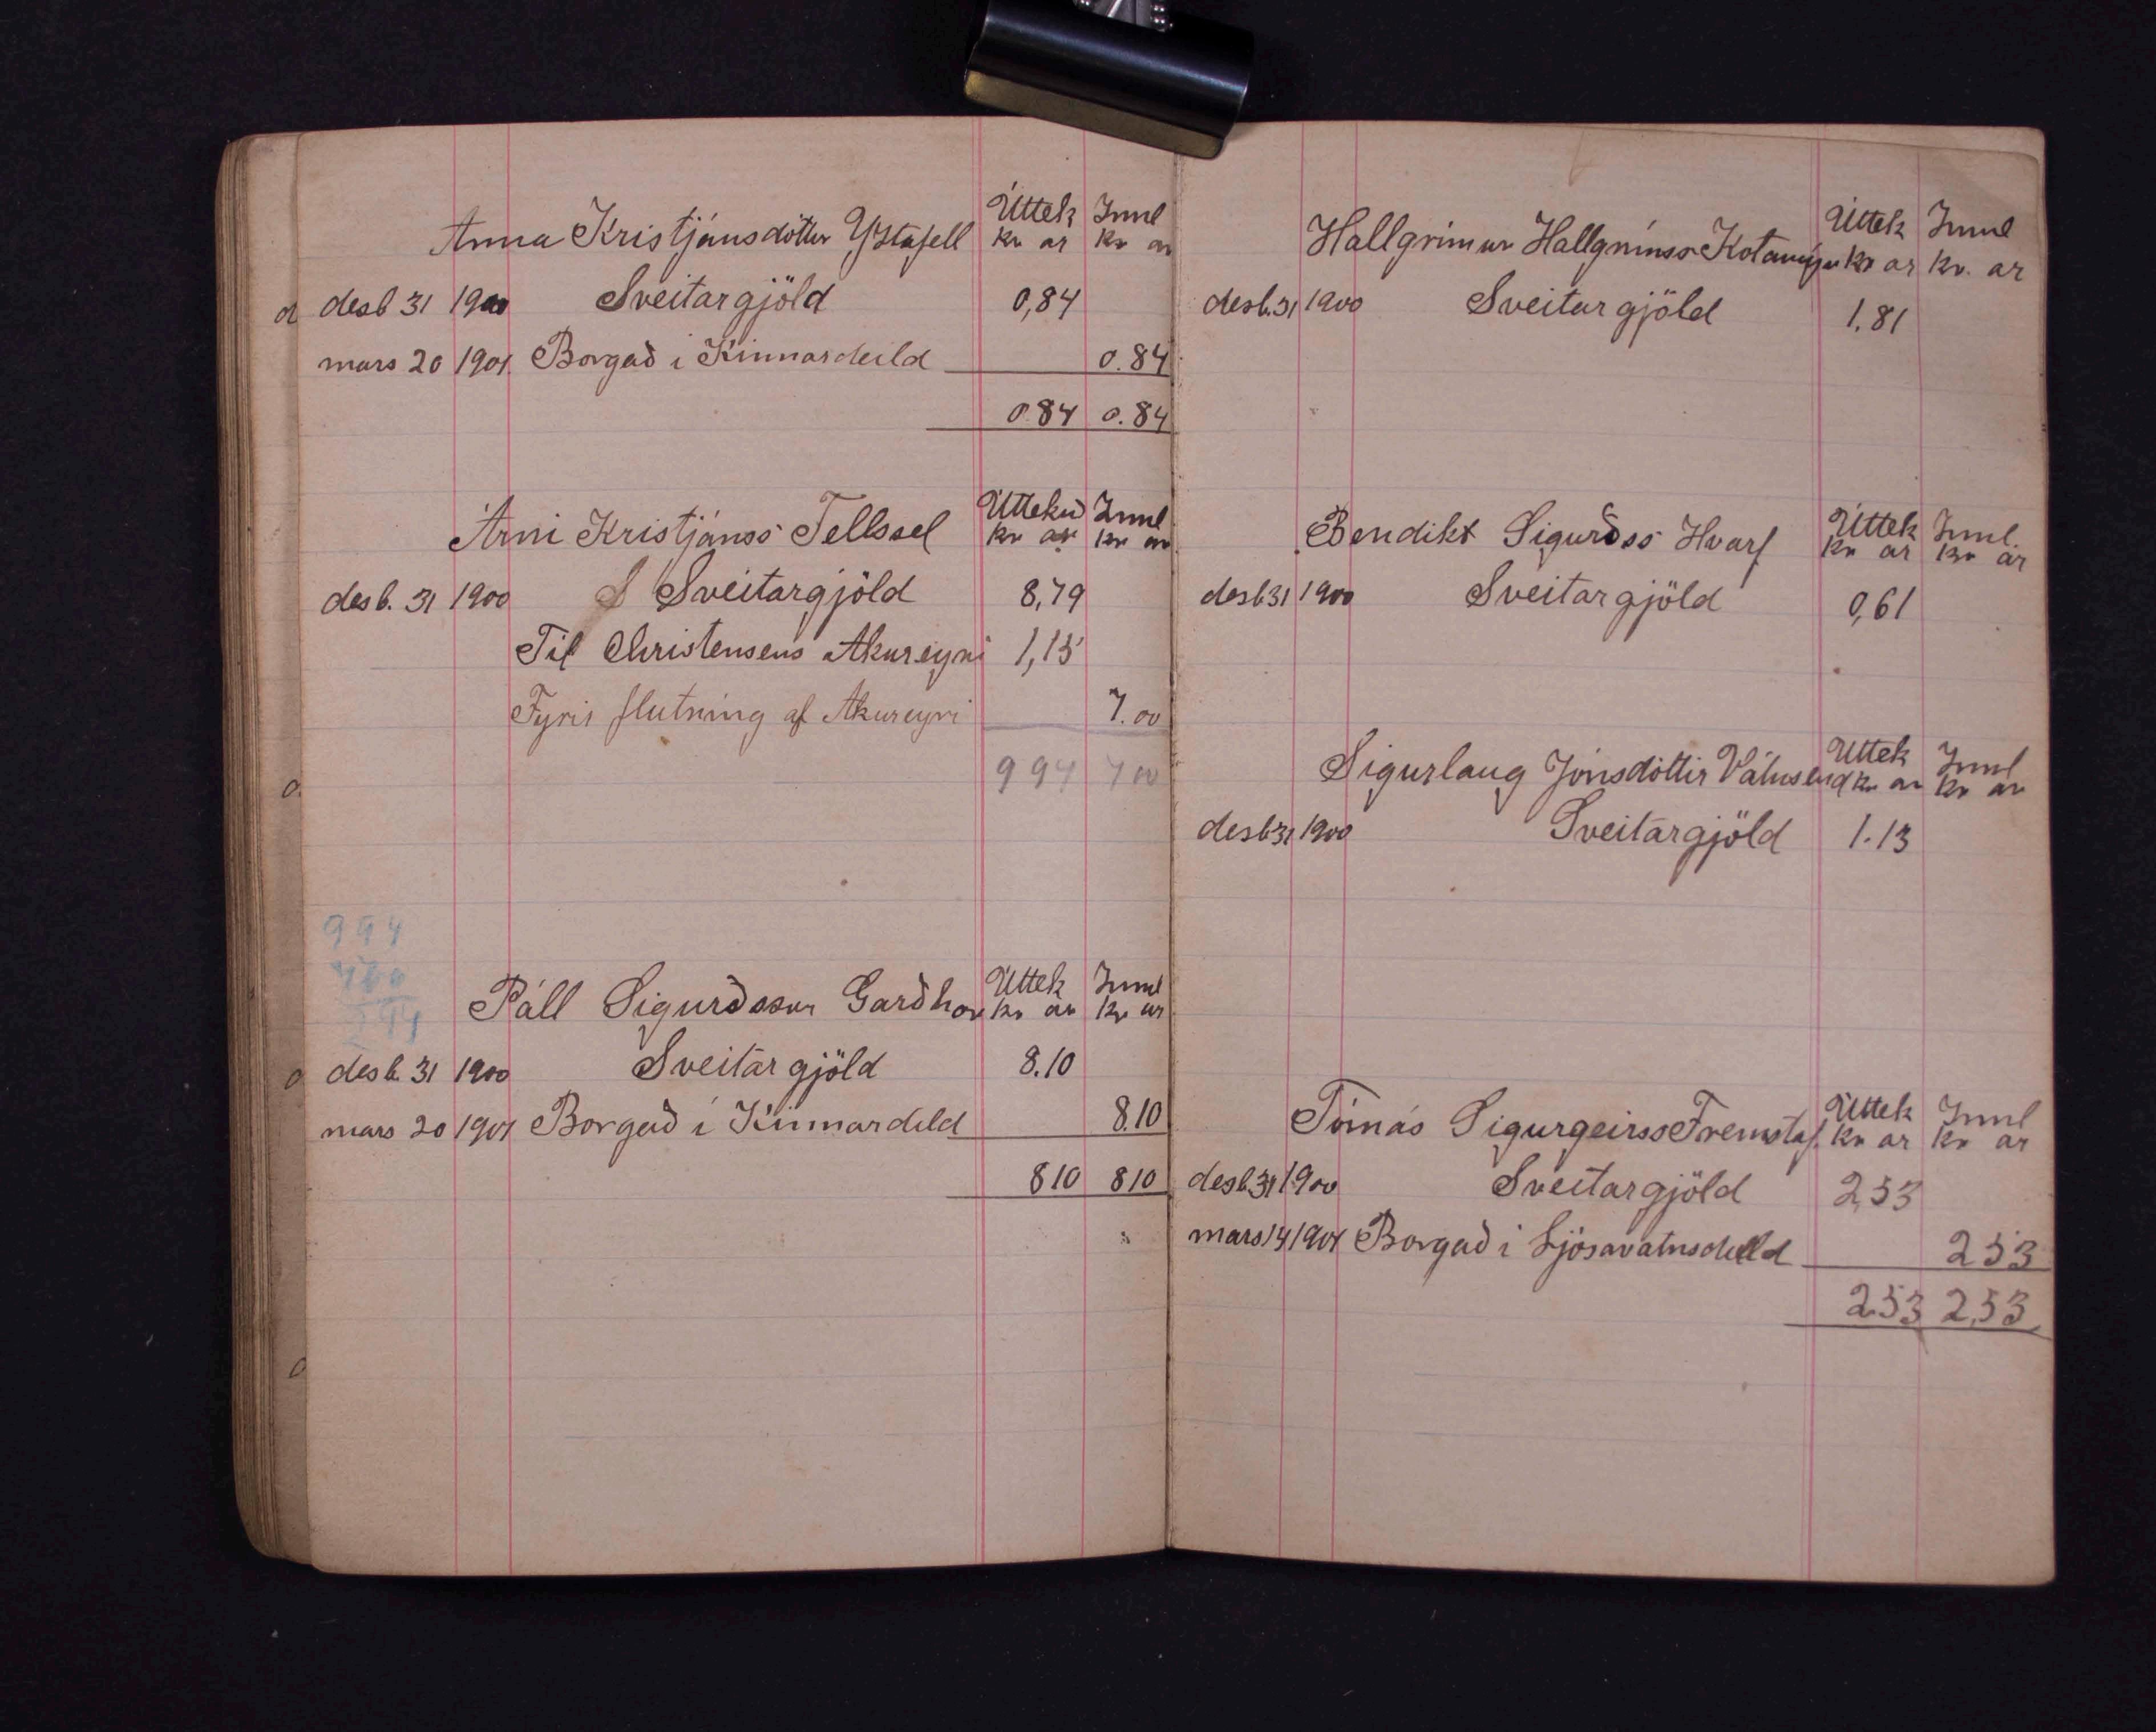 Anna Kristjánsdóttir Ystafell Úttek Innl
kr ar kr ar
desb 31 1900 Sveitargjöld 0,84
mars 20 1901 Borgað i Kinnardeild 0.84
0.84 0.84
Árni Kristjánss Fellssel Úttekið Innl
kr ar kr ar
desb. 31 1900 Sveitargjöld 8,79
Til Christensens Akureyri 1,15
Fyrir flutning af Akureyri 7.00
994 700
994
700
294
Páll Sigurðsson Garðhor Úttek Innl
kr ar kr ar
desb. 31 1900 Sveitargjöld 8.10
mars 20 1901 Borgað i Kinnardeild 8.10
810 810
Hallgrímur Hallgrímss Kotamýri Úttek Innl
kr ar kr. ar
desb. 31 1900 Sveitargjöld 1,81
Bendikt Sigurðss Hvarf Úttek Innl.
kr ar kr ar
desb 31 1900 Sveitargjöld 0,61
Sigurlaug Jónsdóttir Uttek Innl
kr ar kr ar
desb 31 1900 Sveitargjöld 1.13
Tómás Sigurgeirss Fremstaf. Úttek Innl
kr ar kr ar
desb. 31 1900 Sveitargjöld 2,53
mars 14 1901 Borgað i Ljósavatnsdeild 253
2.53 2,53